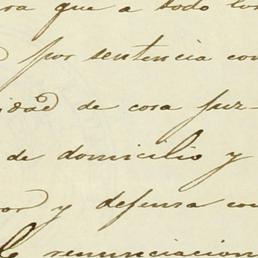 ra que a todo lo
por sentencia con
idad de cosa juz-
de domicilio y
or y defensa con
renunciacion